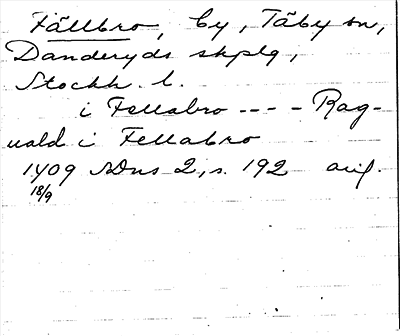 Fällbro, by, Täby sn,
Danderyds skplg,
Stockh. l.
i Fellabro --- - Rag-
uald i Fellabro
1409 SDns 2, s. 192 avf.
18/9